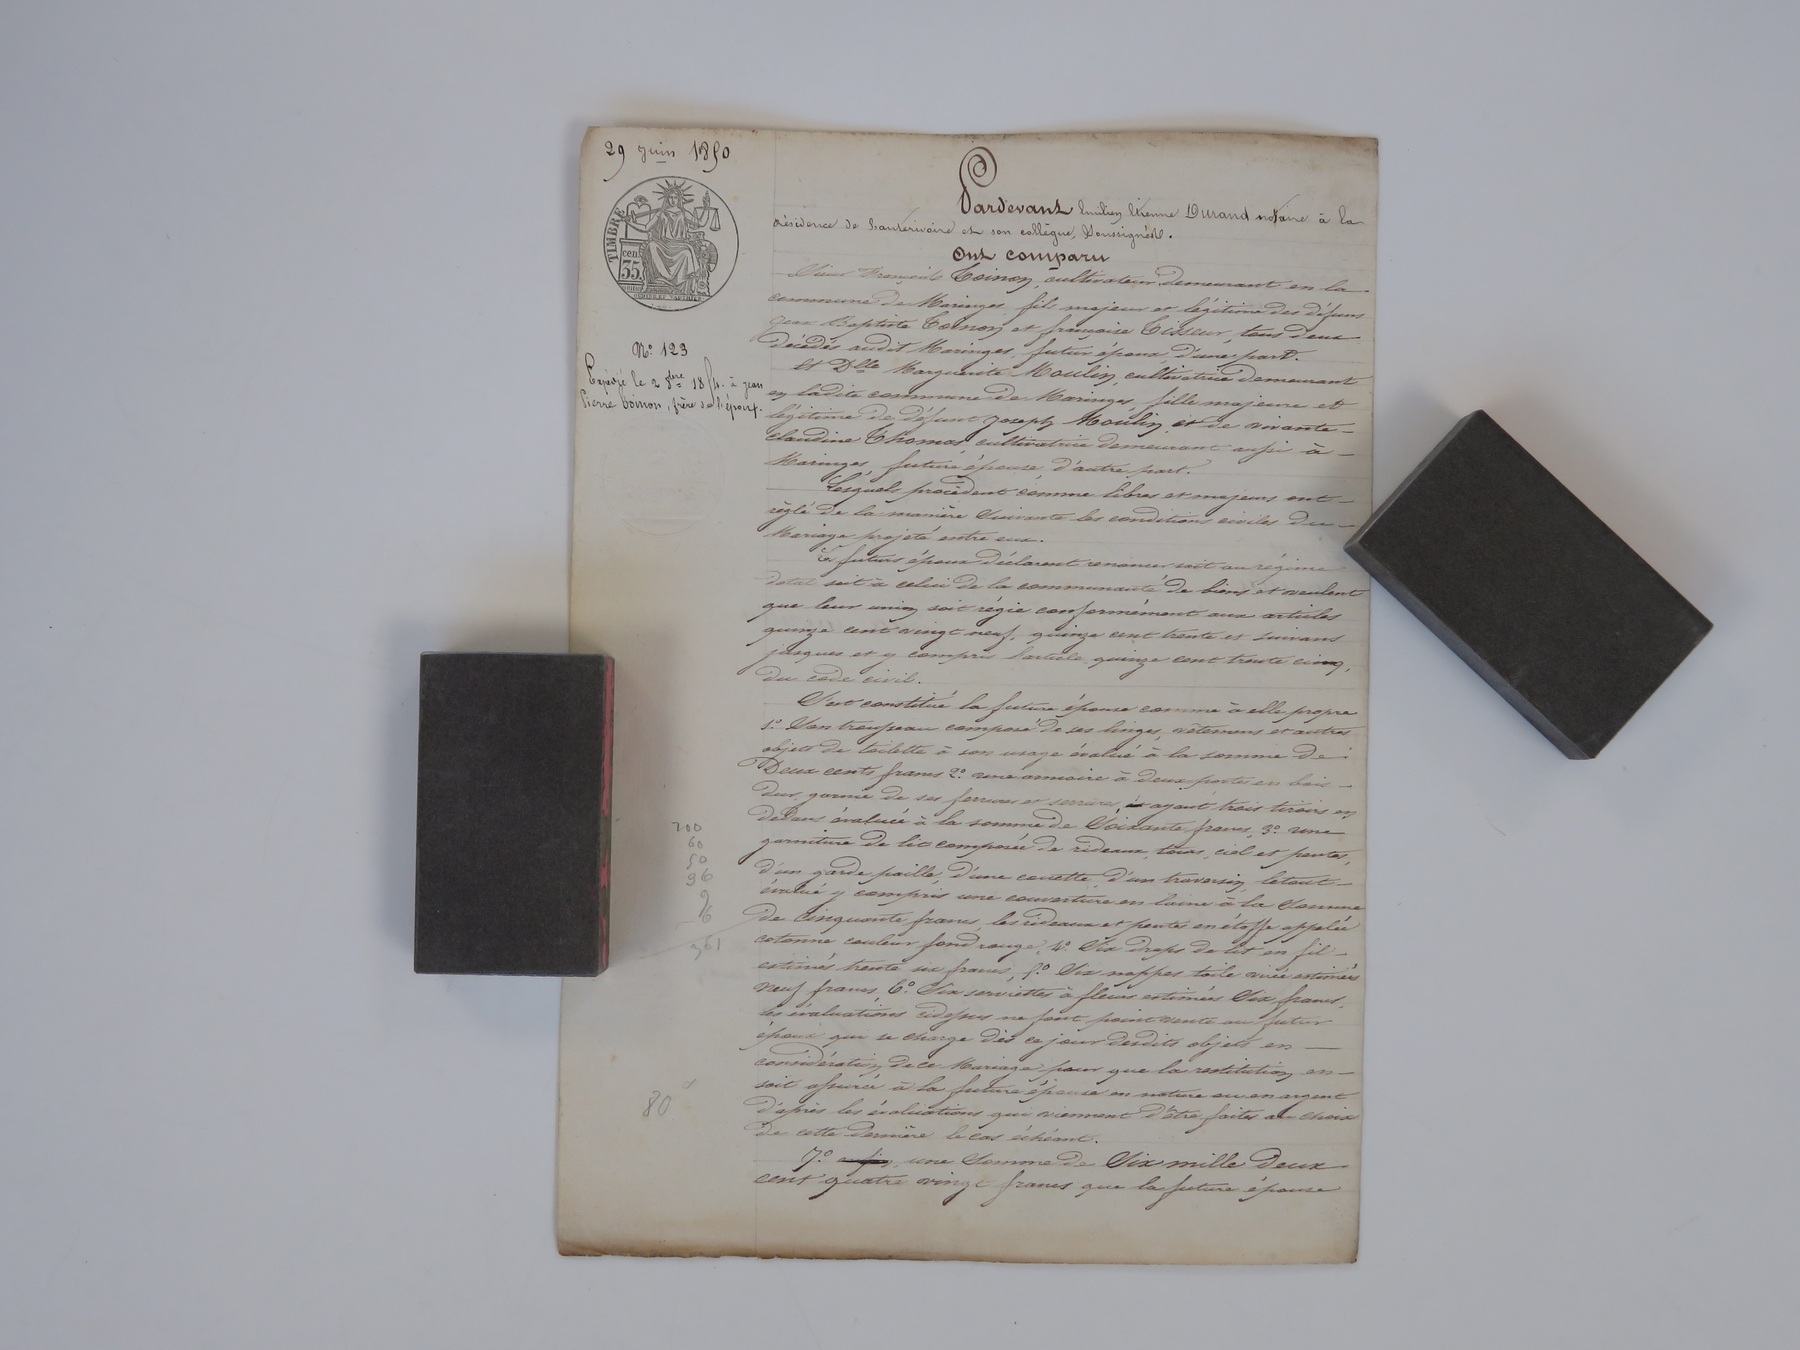 29 juin 1850
TIMBRE
cent
35
N° 123
Expédié le 2 8bre 18 à jean
Pierre Coinon, frère de l'époux.
Pardevant Emilien Etienne Durand notaire à la
résidence de et son collègue, Soussignés.
Ont comparu
Sieur François Coinon, cultivateur demeurant en la
commune de Maringes, fils majeur et légitime des défuns
Jean Baptiste Coinon et françoise Tisseur, tous deux
décédés audit Maringes, futur époux, d'une part.
Et Dlle Marguerite Moulin, cultivatrice demeurant
en ladite commune de Maringes, fille majeure et
légitime de défunt Joseph Moulin et de vivante
claudine Thomas cultivatrice demeurant aussi à
Maringes, future épouse, d'autre part.
Lesquels procèdent comme libres et majeurs ont
réglé de la manière Suivante les conditions civiles du
Mariage projeté entre eux.
Les futurs époux déclarent renoncer soit au régime
dotal soit à celui de la communauté de biens et veulent
que leur union soit régie conformément aux articles
quinze cent vingt neuf, quinze cent trente et suivans
jusques et y compris l'article quinze cent trente cinq,
du code civil.
S'est constitué la future épouse comme à elle propre
1° Son trousseau composé de ses linges, vêtemens et autres
objets de toilette à son usage évalué à la somme de
Deux cents francs 2° une armoire à deux portes en bois
dur, garnie de ses ferrures et serrures, et ayant trois tiroirs en
dedans évaluée à la somme de Soixante francs, 3° une
garniture de lit composée de rideaux, tours, ciel et pentes,
d'un garde paille, d'une couette, d'un traversin, le tout
évalué y compris une couverture en laine à la Somme
de cinquante francs, les rideaux et pentes en étoffe appelée
cotonne couleur fond rouge, 4° Six draps de lit en fil
estimés trente six francs, 5° Six nappes toile estimées
neuf francs, 6° Six serviettes à fleurs estimées Six francs,
les évaluations cidessus ne font point vente au futur
époux qui se charge dès ce jour desdits objets en
considération de ce Mariage pour que la restitution en
soit assurée à la future épouse en nature ou en argent
d'après les évaluations qui viennent d'être faites au choix
de cette dernière le cas échéant.
7° une Somme de Six mille deux
cent quatre vingt francs que la future épouse
200
60
50
36
9
6
361
80